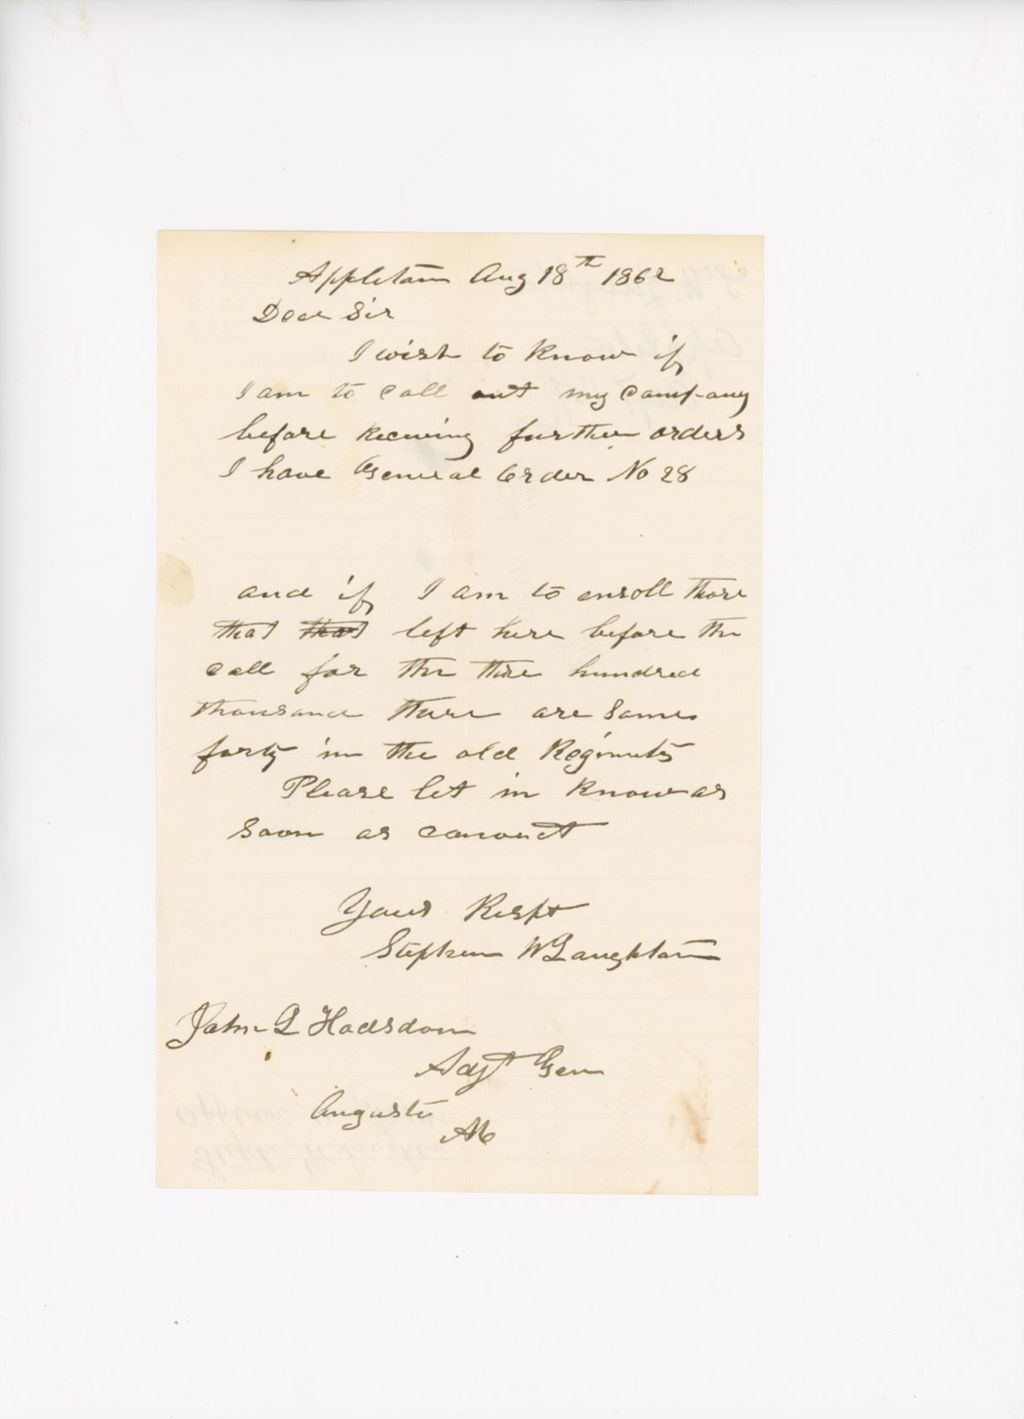 Appleton Aug 18th 1862
Dear Sir
I wish to know if
I am to call out my Company
before Receiving further orders
I have General Order No 28
and if I am to enroll those
that that left here before the
call for the three hundred
thousand there are some
forty in the old Regiments
Please let me know as
soon as convent
Yours Respt
Stephen W Laughton
John L Hodsdon
Adjt Gen
Augusta
Me